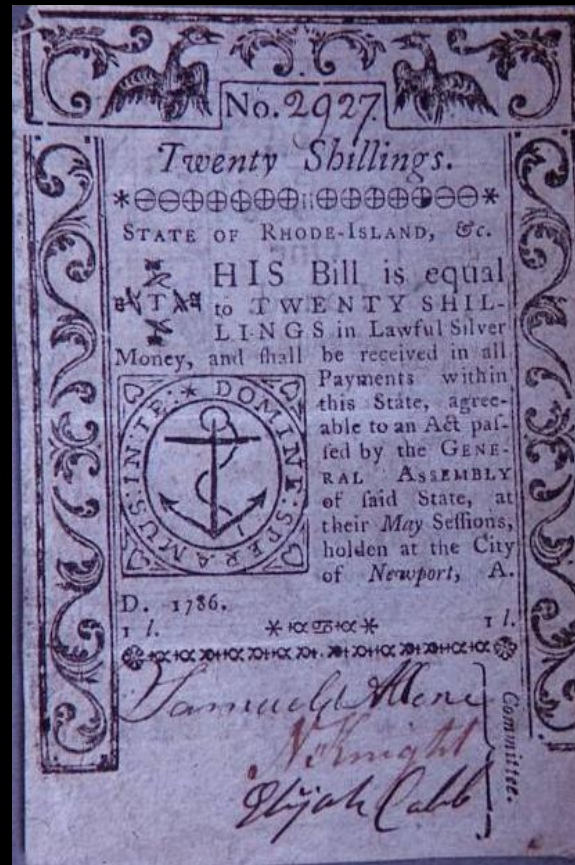 No. 2927.
Twenty Shillings.
STATE OF RHODE-ISLAND, &c.
THIS Bill is equal
to TWENTY SHIL-
LINGS in Lawful Silver
Money, and ſhall be received in all
Payments within
this State, agree-
able to an Act paſ-
ſed by the GENE-
RAL ASSEMBLY
of ſaid State, at
their May Seſſions,
holden at the City
of Newport, A.
D. 1786.
IN TE: * DOMINE: SPERAMUS:
1 l. 1 l.
Samuel Allen
N Knight
Elijah Cobb
Committee.